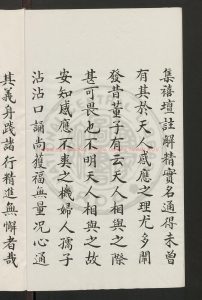 集禧壇註解精實名通得未曾
有其於天人感應之理尤多闡
發昔董子有云天人相與之際
甚可畏也不明天人相與之故
安知感應不爽之機婦人孺子
沾沾口誦尚獲福無量况心通
其義身踐諸行精進無懈者哉